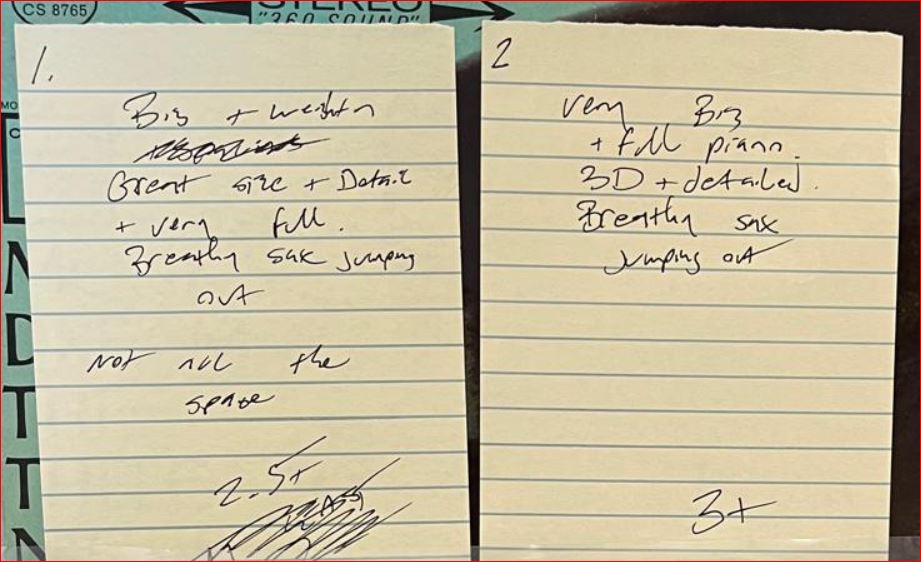 CS 8765
STEREO
"360 SOUND"
1.
Big + weighty
Great size + Detail
+ very full.
Breathy sax jumping
out
Not all the
space
2.5+
2
very Big
+ full piano.
3D + detailed.
Breathy sax
jumping out
3+